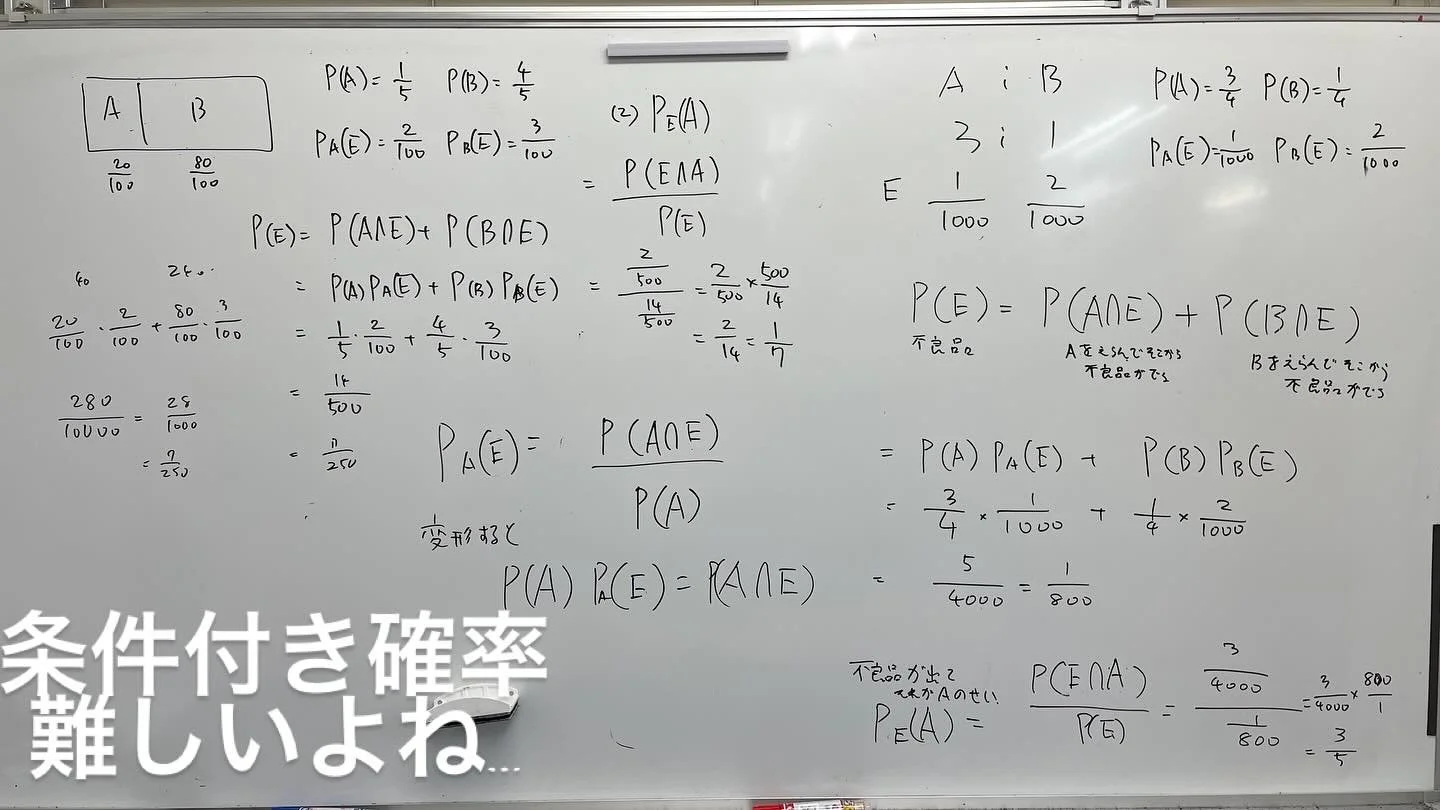 A B
20/100 80/100
P(A)=1/5 P(B)=4/5
P_A(E)=2/100 P_B(E)=3/100
P(E)= P(A∩E)+ P(B∩E)
= P(A)P_A(E)+ P(B)P_B(E)
= 1/5・2/100 + 4/5・3/100
= 14/500
= 7/250
40 240
20/100・2/100 + 80/100・3/100
280/10000 = 28/1000
= 7/250
(2) P_E(A)
= P(E∩A)/P(E)
= (2/500)/(14/500) = 2/500 × 500/14
= 2/14 = 1/7
P_A(E)= P(A∩E)/P(A)
変形すると
P(A) P_A(E) = P(A∩E)
A : B
3 : 1
E 1/1000 2/1000
P(A)=3/4 P(B)=1/4
P_A(E)=1/1000 P_B(E)=2/1000
P(E)= P(A∩E)+ P(B∩E)
不良品 Aをえらんでそこから Bをえらんでそこから
不良品がでる 不良品がでる
= P(A) P_A(E) + P(B) P_B(E)
= 3/4 × 1/1000 + 1/4 × 2/1000
= 5/4000 = 1/800
不良品が出て
それがAのせい
P_E(A) = P(E∩A)/P(E) = (3/4000)/(1/800) = 3/4000 × 800/1
= 3/5
条件付き確率
難しいよね...